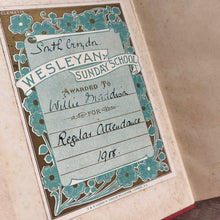 South Croydon
WESLEYAN
SUNDAY SCHOOL
AWARDED TO
Willie
FOR
Regular Attendance
1918.